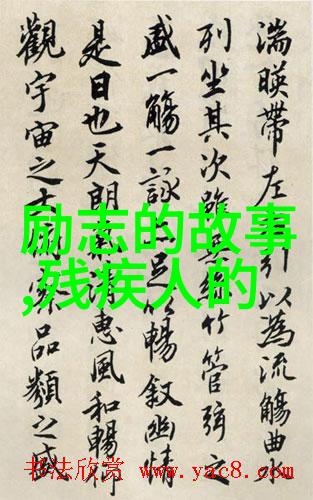 湍暎帶左引以為流觴曲
列坐其次雖無絲竹管弦之
盛一觴一詠亦足以暢敘幽情
是日也天朗氣清惠風和暢仰
觀宇宙之大俯察品類之盛
励志的故事
,残疾人的
书法欣赏 www.yac8.com